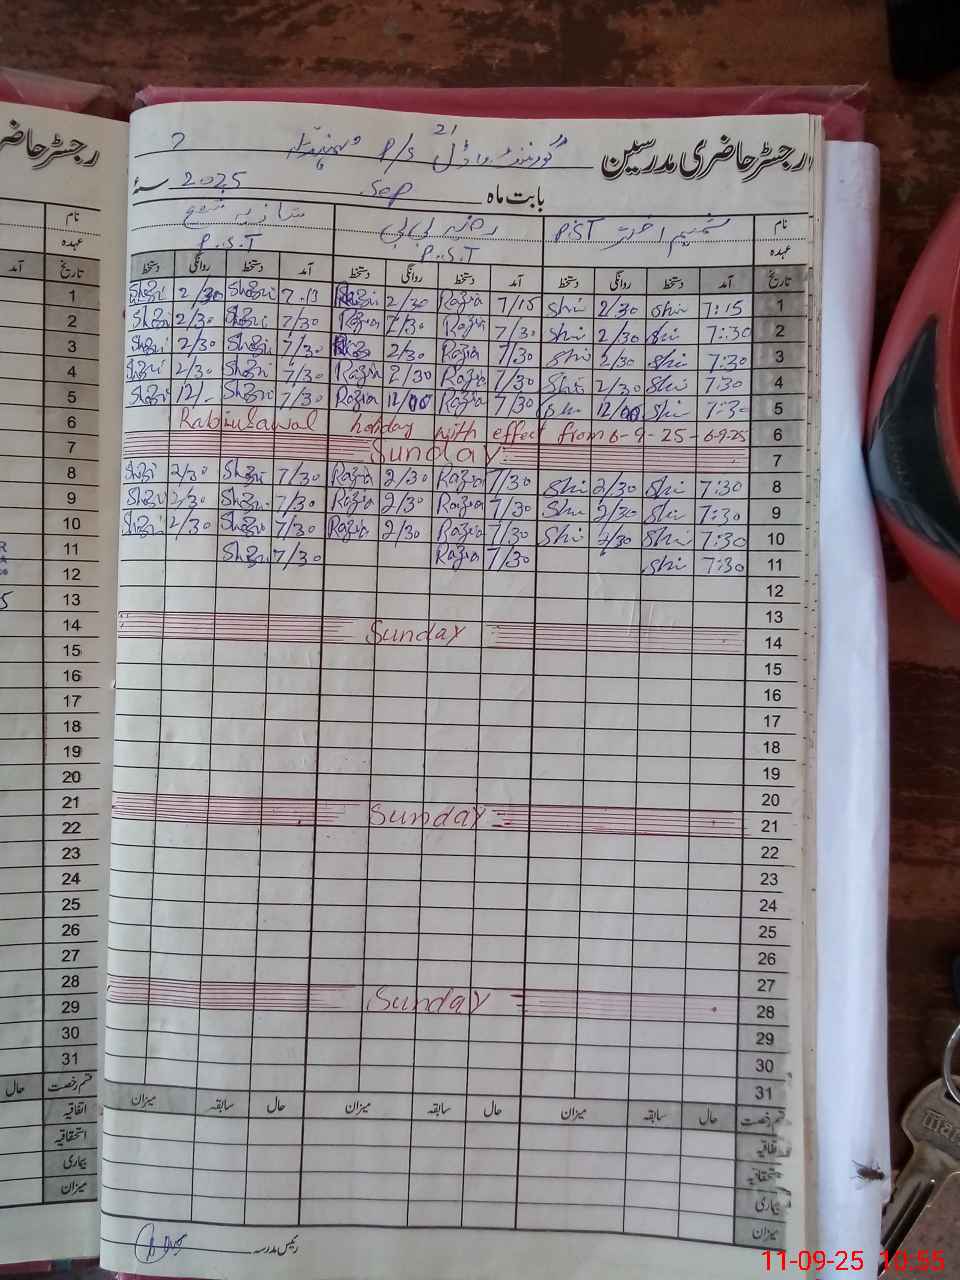 رجسٹر حاضری مدرسین گورنمنٹ ماڈل P/S
21
بابت ماہ Sep سنہ 2025
نام شمیم اختر PST رضیہ بی بی P.S.T شازیہ P.S.T نام
عہدہ عہدہ
تاریخ آمد دستخط روانگی دستخط آمد دستخط روانگی دستخط آمد دستخط روانگی دستخط تاریخ آمد
1 7:15 Shi 2/30 Shi 7/15 Razia 2/30 7.13 Shazi 2/30 Shazi 1
2 7:30 Shi 2/30 Shi 7/30 Razia 2/30 Razia 7/30 Shazi 2/30 Shazi 2
3 7:30 Shi 2/30 Shi 7/30 Razia 2/30 7/30 Shazi 2/30 Shazi 3
4 7:30 Shi 2/30 Shi 7/30 Razia 2/30 Razia 7/30 Shazi 2/30 Shazi 4
5 7:30 Shi 12/00 Shi 7/30 Razia 12/00 Razia 7/30 Shazi 12/- Shazi 5
6 Rabiulawal holiday with effect from 6-9-25-6-9-25 6
7 Sunday 7
8 7:30 Shi 2/30 Shi 7/30 Razia 2/30 Razia 7/30 Shazi 2/30 Shazi 8
9 7:30 Shi 2/30 Shi 7/30 Razia 2/30 Razia 7/30 Shazi 2/30 Shazi 9
10 7:30 Shi 2/30 Shi 7/30 Razia 2/30 Razia 7/30 Shazi 2/30 Shazi 10
11 7:30 Shi 7/30 Razia 7/30 Shazi 11
12 12
13 13
14 Sunday 14
15 15
16 16
17 17
18 18
19 19
20 20
21 Sunday 21
22 22
23 23
24 24
25 25
26 26
27 27
28 Sunday 28
29 29
30 30
31 31
قسم رخصت حال سابقہ میزان حال سابقہ میزان حال سابقہ میزان قسم رخصت حال
اتفاقیہ اتفاقیہ
استحقاقیہ استحقاقیہ
بیماری بیماری
میزان میزان
رئیس مدرسہ
11-09-25 10:55